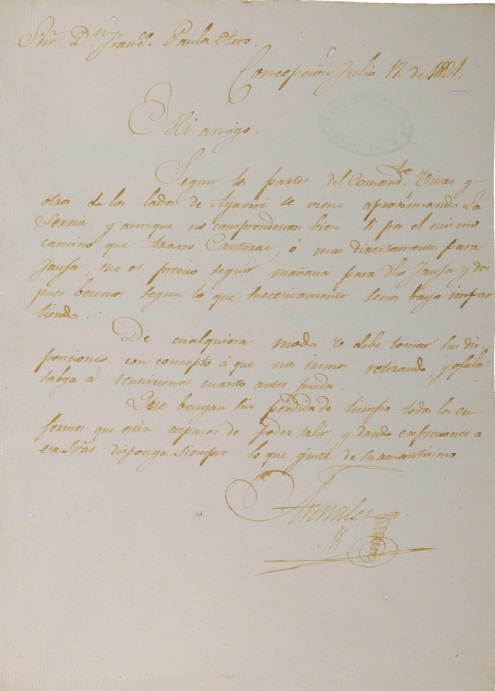 Sor. Dn. Franco. Paula Otero.
Concepcion Julio 17. de 1821.
Mi amigo.
Segun los partes del Comandte. Vivas y
otros de los lados de Ayaviri se viene aproximando La
Serna y aunque no comprendemos bien si por el mismo
camino que traxo Canterac, ó mas directamente para
Jauja, me es preciso seguir mañana para Jauja y des
pues beremos segun lo que succesivamente senos baya impar
tiendo.
De cualquiera modo debe tomar sus dis
posiciones con concepto á que nos iremos retirando y ojala
salga á reunirsenos cuanto antes pueda.
Que bengan sin pérdida de tiempo todos los en
fermos que estén capaces de poder salir, y dando expresiones á
esas Sras. disponga siempre lo que guste de su amantisimo
Arenales